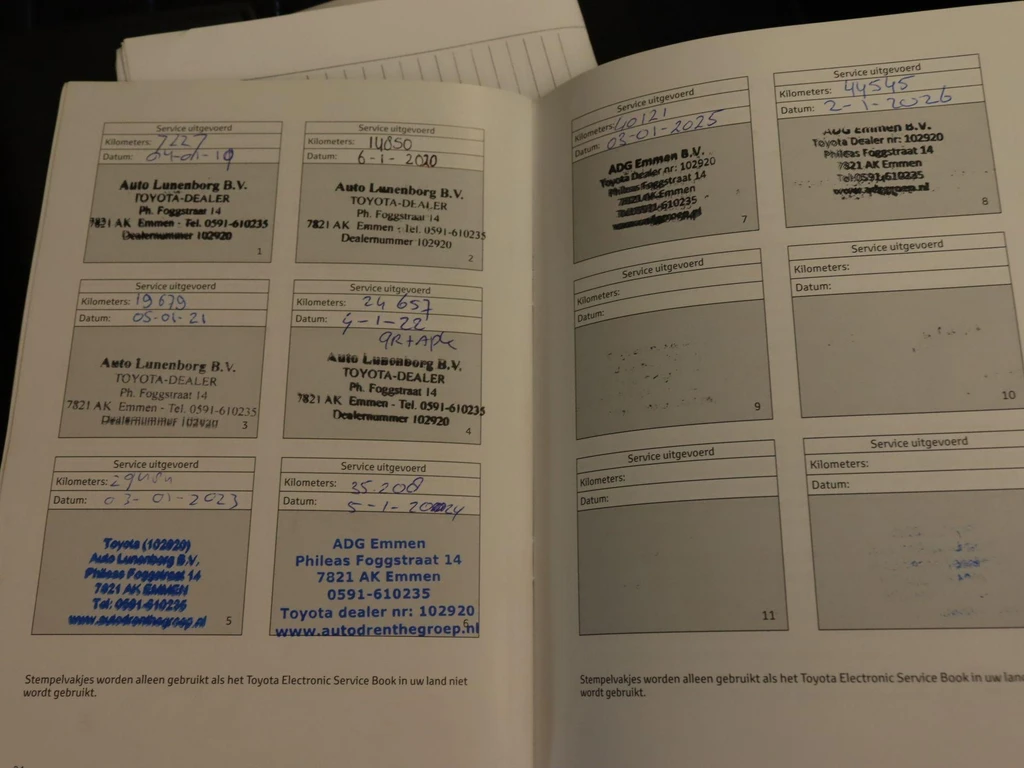 Service uitgevoerd
Kilometers: 7227
Datum: 04-01-19
Auto Lunenborg B.V.
TOYOTA-DEALER
Ph. Foggstraat 14
7821 AK Emmen - Tel. 0591-610235
Dealernummer 102920
1
Service uitgevoerd
Kilometers: 14850
Datum: 6-1-2020
Auto Lunenborg B.V.
TOYOTA-DEALER
Ph. Foggstraat 14
7821 AK Emmen - Tel. 0591-610235
Dealernummer 102920
2
Service uitgevoerd
Kilometers: 19679
Datum: 05-01-21
Auto Lunenborg B.V.
TOYOTA-DEALER
Ph. Foggstraat 14
7821 AK Emmen - Tel. 0591-610235
Dealernummer 102920
3
Service uitgevoerd
Kilometers: 24 657
Datum: 4-1-22
Auto Lunenborg B.V.
TOYOTA-DEALER
Ph. Foggstraat 14
7821 AK Emmen - Tel. 0591-610235
Dealernummer 102920
4
Service uitgevoerd
Kilometers:
Datum: 03-01-2023
Toyota (102920)
Auto Lunenborg B.V.
Phileas Foggstraat 14
7821 AK EMMEN
Tel: 0591-610235
www.autodrenthegroep.nl
5
Service uitgevoerd
Kilometers: 35.208
Datum: 5-1-2024
ADG Emmen
Phileas Foggstraat 14
7821 AK Emmen
0591-610235
Toyota dealer nr: 102920
www.autodrenthegroep.nl
6
Stempelvakjes worden alleen gebruikt als het Toyota Electronic Service Book in uw land niet
wordt gebruikt.
Service uitgevoerd
Kilometers: 40121
Datum: 03-01-2025
ADG Emmen B.V.
Toyota Dealer nr: 102920
Phileas Foggstraat 14
7821 AK Emmen
Tel: 0591-610235
www.adggroep.nl
7
Service uitgevoerd
Kilometers: 44545
Datum: 2-1-2026
ADG Emmen B.V.
Toyota Dealer nr: 102920
Phileas Foggstraat 14
7821 AK Emmen
Tel: 0591-610235
www.adggroep.nl
8
Service uitgevoerd
Kilometers:
Datum:
9
Service uitgevoerd
Kilometers:
Datum:
10
Service uitgevoerd
Kilometers:
Datum:
11
Service uitgevoerd
Kilometers:
Datum:
Stempelvakjes worden alleen gebruikt als het Toyota Electronic Service Book in uw land
wordt gebruikt.